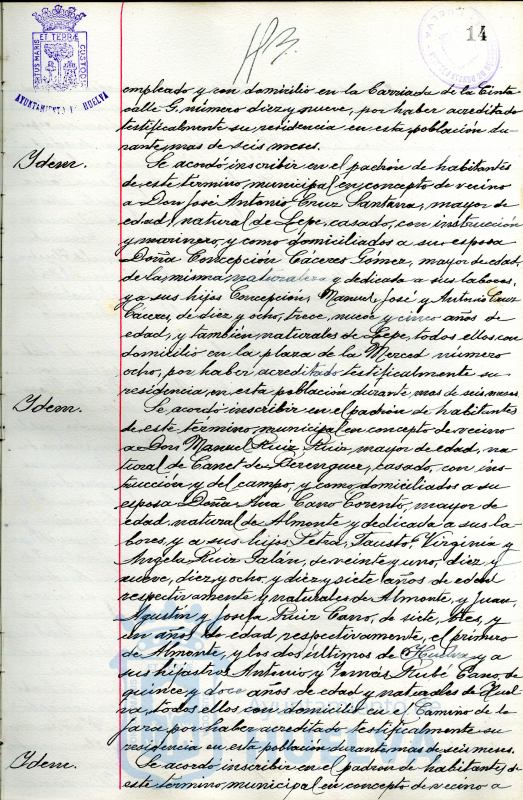 PORTUS MARIS
ET TERRÆ
CUSTODIA
AYUNTAMIENTO DE HUELVA
14
empleado y con domicilio en la Barriada de la Cinta
calle G. número diez y nueve, por haber acreditado
testificalmente su residencia en esta población du-
rante mas de seis meses.
Idem.
Se acordó inscribir en el padrón de habitantes
de este término municipal en concepto de vecino
a Don José Antonio Cruz Santana, mayor de
edad, natural de Lepe, casado, con instrucción
y marinero, y como domiciliados a su esposa
Doña Concepción Cáceres Gómez, mayor de edad,
de la misma naturaleza y dedicada a sus labores,
y a sus hijos Concepción, Manuel, José y Antonio Cruz
Cáceres, de diez y ocho, trece, nueve y cinco años de
edad, y también naturales de Lepe, todos ellos con
domicilio en la plaza de la Merced número
ocho, por haber acreditado testificalmente su
residencia en esta población durante mas de seis meses.
Idem.
Se acordó inscribir en el padrón de habitantes
de este término municipal en concepto de vecino
a Don Manuel Ruiz Ruiz, mayor de edad, na-
tural de Canet de Berenguer, casado, con ins-
trucción y del campo, y como domiciliados a su
esposa Doña Ana Cano Corento, mayor de
edad, natural de Almonte y dedicada a sus la-
bores, y a sus hijos Petra, Fausto, Virginia y
Angela Ruiz Galán, de veinte y uno, diez y
nueve, diez y ocho y diez y siete años de edad
respectivamente y naturales de Almonte, y Juan,
Agustín y Josefa Ruiz Cano, de siete, tres, y
un años de edad respectivamente, el primero
de Almonte, y los dos últimos de Huelva, y a
sus hijastros Antonio y Tomás Rubé Cano, de
quince y doce años de edad y naturales de Huel-
va, todos ellos con domicilio en el Camino de la
fara, por haber acreditado testificalmente su
residencia en esta población durante mas de seis meses.
Idem.
Se acordó inscribir en el padrón de habitantes de
este término municipal en concepto de vecino a